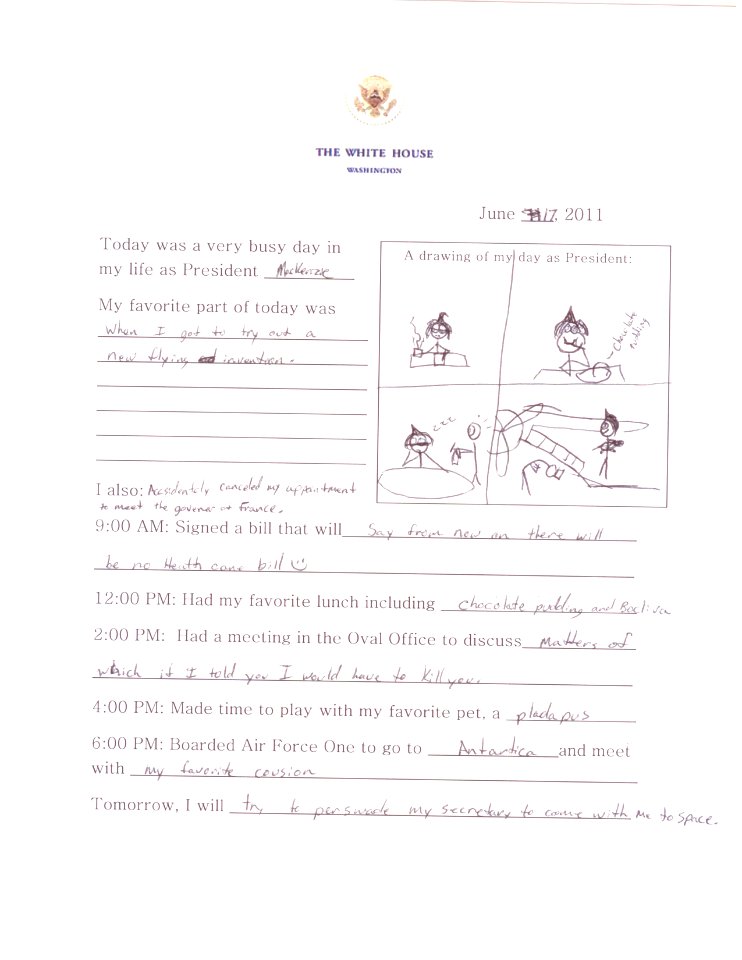 THE WHITE HOUSE
WASHINGTON
June 17, 2011
Today was a very busy day in
my life as President Mackenzie
My favorite part of today was
when I got to try out a
new flying invention.
A drawing of my day as President:
chocolate
pudding
zzz
I also: Accidentely canceled my appointment
to meet the govener of France.
9:00 AM: Signed a bill that will Say from now on there will
be no Health care bill
12:00 PM: Had my favorite lunch including chocolate pudding and
2:00 PM: Had a meeting in the Oval Office to discuss Matters of
which if I told you I would have to kill you.
4:00 PM: Made time to play with my favorite pet, a pladapus
6:00 PM: Boarded Air Force One to go to Antartica and meet
with my favorite cousion
Tomorrow, I will try to perswade my secretary to come with me to space.